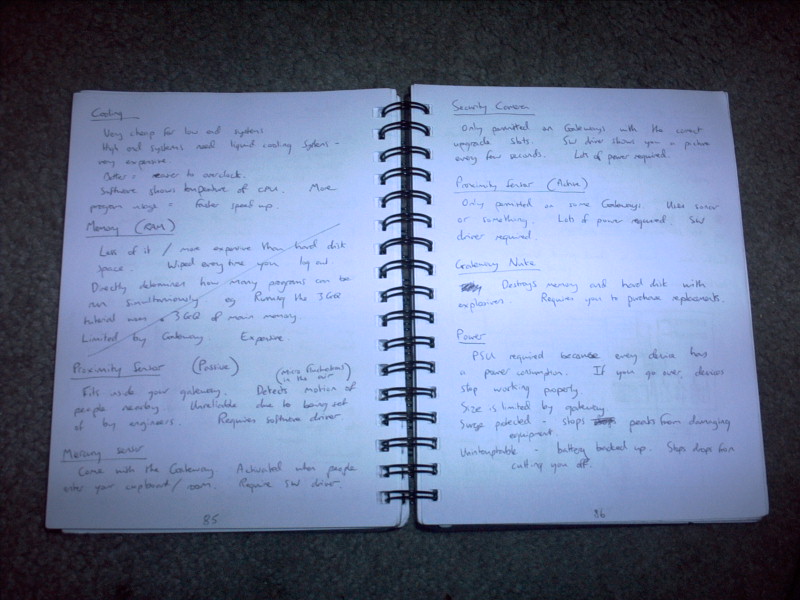 Cooling
Very cheap for low end systems
High end systems need liquid cooling systems -
very expensive.
Better = easier to overclock.
Software shows temperature of CPU. More
program usage = faster speed up.
Memory (RAM)
Less of it / more expensive than hard disk
space. Wiped every time you log out.
Directly determines how many programs can be
run simultaneously eg Running the 3GQ
tutorial uses 3GQ of main memory.
Limited by Gateway. Expensive.
Proximity Sensor (Passive)
(in the air)
Fits inside your gateway. Detects motion of
people nearby. Unreliable due to being set
off by engineers. Requires software driver
Mercury sensor
Come with the Gateway Activated when people
enter your cupboard / room. Require SW driver.
85
Security Camera
Only permitted on Gateways with the correct
upgrade slots. SW driver shows you a picture
every few seconds. Lots of power required.
Proximity Sensor (Active)
Only permitted on some Gateways. Uses sonar
or something. Lots of power required. SW
driver required.
Gateway Nuke
Destroys memory and hard disk with
explosives. Requires you to purchase replacements.
Power
PSU required because every device has
a power consumption. If you go over, devices
stop working properly.
Size is limited by gateway
Surge protected - stops peaks from damaging
equipment
Uninterruptable - battery backed up. Stops drops from
cutting you off.
86